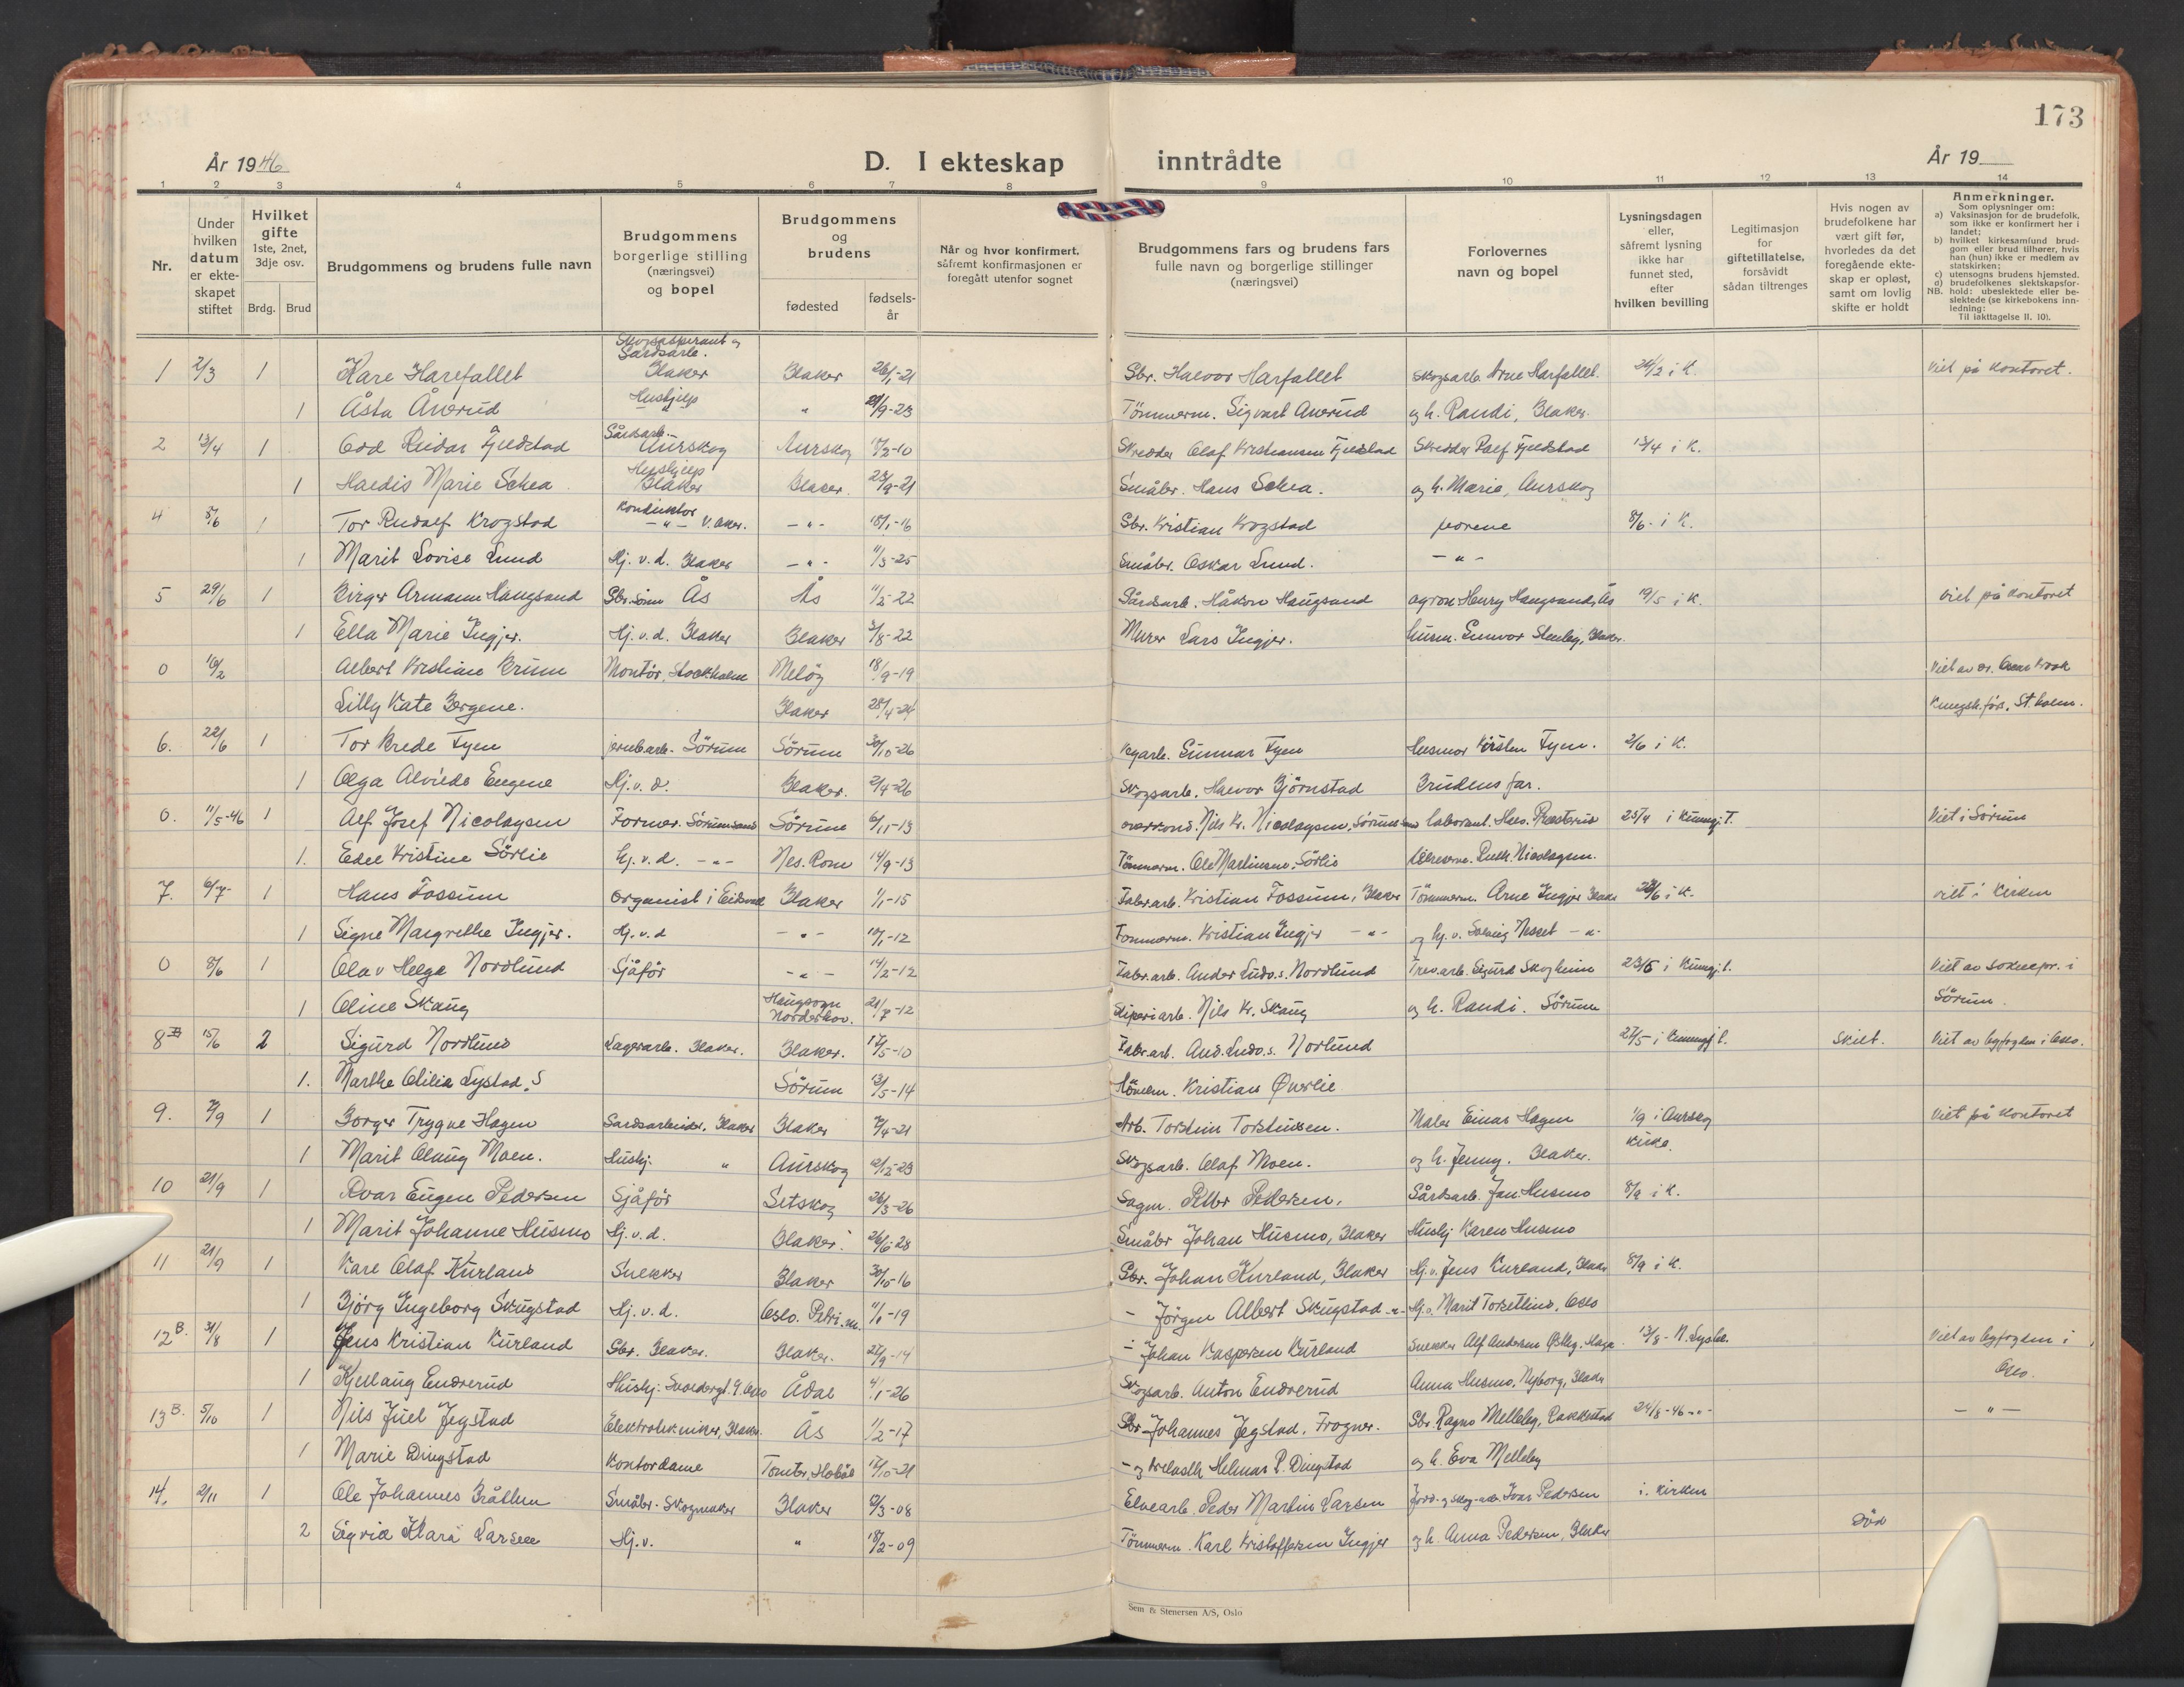 173
År 1946
D. I ekteskap inntrådte
År 19
1 2 3 4 5 6 7 8 9 10 11 12 13 14
Nr.
Under hvilken datum er ekteskapet stiftet
Hvilket gifte 1ste, 2net, 3dje osv.
Brdg. Brud
Brudgommens og brudens fulle navn
Brudgommens borgerlige stilling (næringsvei) og bopel
Brudgommens og brudens
fødested
fødsels-år
Når og hvor konfirmert, såfremt konfirmasjonen er foregått utenfor sognet
Brudgommens fars og brudens fars fulle navn og borgerlige stillinger (næringsvei)
Forlovernes navn og bopel
Lysningsdagen eller, såfremt lysning ikke har funnet sted, efter hvilken bevilling
Legitimasjon for giftetillatelse, forsåvidt sådan tiltrenges
Hvis nogen av brudefolkene har vært gift før, hvorledes da det foregående ekteskap er opløst, samt om lovlig skifte er holdt
Anmerkninger.
Som oplysninger om:
a) Vaksinasjon for de brudefolk, som ikke er konfirmert her i landet;
b) hvilket kirkesamfund brudgom eller brud tilhører, hvis han (hun) ikke er medlem av statskirken;
c) utensogns brudens hjemsted.
d) brudefolkenes slektskapsforhold: ubeslektede eller beslektede (se kirkebokens innledning:
NB.
Til iakttagelse II. 10).
1 2/3 1 Kåre Harefallet Skogsaspirant og Gårdsarb. Blaker Blaker 26/1-21 Gbr. Halvor Harfallet Skogsarb. Arne Harfallet. 24/2 i K. Viet på kontoret.
1 Åsta Ånerud Hushjelp " 29/9-23 Tömmerm. Sigvart Anerud og h. Randi, Blaker.
2 13/4 1 Odd Reidar Fjeldstad Gårdsarb. Aurskog Aurskog -10 Skredder Olaf Kristiansen Fjeldstad Skredder Fjeldstad 13/4 i K.
1 Haldis Marie Schea Hushjelp Blaker Blaker. 23/9-21 Småbr. Hans Schea. og h. Marie, Aurskog
4 8/6 1 Tor Rudolf Krogstad Konduktør -"- V. Aker. -"- 18/1-16 Gbr. Kristian Krogstad 8/6 - i K.
1 Marit Lovise Lund Hj. v. d. Blaker -"- 11/3-25 Småbr. Oskar Lund. -"-
5 29/6 1 Birger Armann Haugsand Gbr. sønn Ås Ås 11/2-22 Gårdsarb. Håkon Haugsand agron. Henry Haugsand, Ås 19/5 i K. Viet på kontoret
1 Ella Marie Ingjer. Hj. v. d. Blaker Blaker 3/8-22 Murer Lars Ingjer. Husm. Gunvor Stenby, Blaker.
0 16/2 Albert Kristian Bruun Montør, Stockholm Meløy 18/9-19 Viet av
Lilly Kate Bergene. Blaker 28/4-24 Kungsh. förs. St.holm.
6. 22/6 1 Tor Brede Fyen jernb.arb. Sörum Sörum 30/10-26 Gunnar Fyen Husmor Kirsten Fyen. 2/6 i K.
1 Olga Alvilde Engene Hj. v. d. Blaker. 2/4-26 Skogsarb. Halvor Björnstad Brudens far.
0. 11/5-46 1 Alf Josef Nicolaysen Former. Sörumsand Sörum 6/11-13 Nils Kr. Nicolaysen, Sörumsand laborant. 25/4 i kunngj. t. Viet i Sörum
1. Edel Kristine Sörlie Hj. v. d. -"- Nes. Rom 14/9-13 Tömmerm. Ole Martinsen Sörlie Ruth Nicolaysen.
7. 6/7- 1 Hans Fossum organist i Eidsvoll Blaker 1/1-15 Fabr.arb. Kristian Fossum, Blaker Tömmerm. Arne Ingjer Blaker 23/6 i K. viet i Kirken
1 Signe Margrethe Ingjer. Hj. v. d -"- 10/1-12 Tommerm. Kristian Ingjer -"- og hj. v. Solveig Nesset -"-
0 8/6 1 Olav Helge Nordlund Sjåför -"- 14/2-12 Fabr.arb. Ander Ludv.s. Nordlund Trev.arb. Sigurd Skogheim 23/5 i kunngj. t. Viet av soknepr. i
1 Oline Skaug Haugsogn Norderhov. 21/7-12 Sliperiarb. Nils Kr. Skaug og h. Randi. Sörum Sörum.
8 B 15/6 2 Sigurd Nordlund Lagerarb. Blaker. Blaker. 17/5-10 Fabr.arb. And. Ludv.s. Norlund 27/5 - i kunngj. t. Skilt. Viet av byfogden i Oslo.
1. Marthe Otilia Lystad, S Sörum 13/5-14 Kristian Øverlie
9. 7/9 1 Borger Trygve Hagen Gardsarbeider. Blaker Blaker 7/4-21 Arb. Torstein Torstensen. Maler Einar Hagen 1/9 i Aurskog Viet på kontoret
1 Marit Olaug Moen. Hushj. " Aurskog 12/12-23 Skogsarb. Olaf Moen. og h. Jenny. Blaker. kirke.
10 21/9 1 Roar Eugen Pedersen Sjåför Setskog 26/3-26 Sagm. Petter Pedersen, Gårdsarb. Jan Husmo 8/9 i K.
1 Marit Johanne Husmo Hj. v. d. Blaker. 26/6-28 Småbr Johan Husmo, Blaker Hushj Karen Husmo
11 21/9 1 Kåre Olaf Kurland Snekker Blaker 30/10-16 Gbr. Johan Kurland, Blaker Hj. v. Jens Kurland, Blaker 8/9 i K.
1 Bjørg Ingeborg Skugstad Hj. v. d. Oslo. Petri. m. 11/1-19 - Jörgen Albert Skugstad -"- Hj. v. Marit Oslo
12 B. 31/8 1 Jens Kristian Kurland Gbr. Blaker. Blaker. 27/9-14 - Johan Kaspersen Kurland Snekker Alf Andersen 13/8 - N. Lysbl. Viet av byfogden i
1 Kjellaug Endrerud Hushj. Oslo Ådal 4/1-26 Skogsarb. Anton Endrerud Anna Husmo, Nyborg, Blaker Oslo.
13 B. 5/10 1 Nils Juel Jegstad Elektrotekniker, Blaker. Ås 1/2-17 Gbr. Johannes Jegstad, Frogner. Gbr. Ragno Melleby, Rakkestad 24/8-46 -"- -"-
1 Marie Dingstad Kontordame Tomter, Hobøl 17/10-21 Helmar P. Dingstad og h. Eva Melleby
14. 2/11 1 Ole Johannes Bråthen Småbr. - Skogvokter Blaker 5/3-08 Elvearb. Peder Martin Larsen Jord- og skog-arb. Ivar Pedersen i kirken
2 Sigrid Klara Larsen Hj. v. " 18/2-09 Tömmerm. Karl Kristoffersen Ingjer og h. Anna Pedersen, Blaker Död
Sem & Stenersen A/S, Oslo